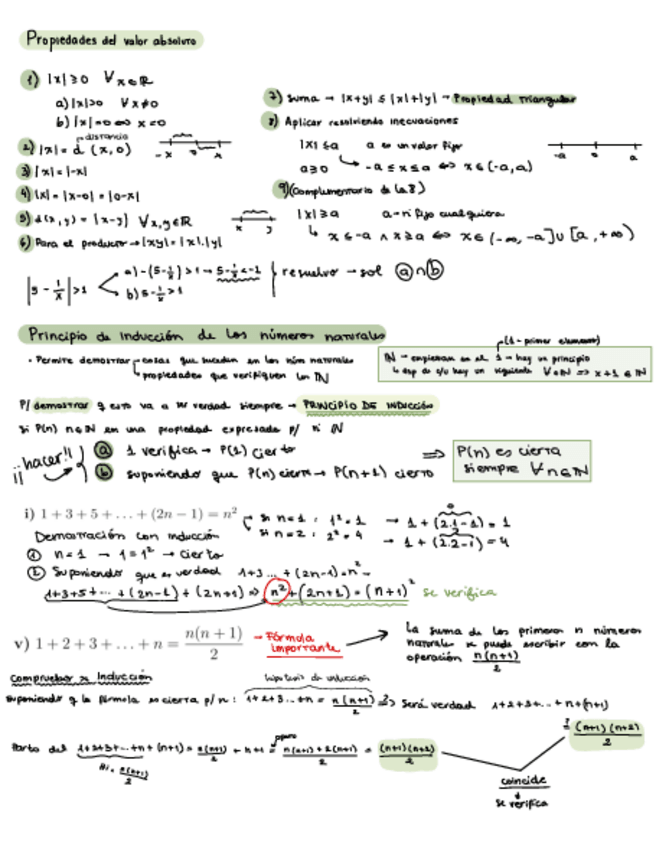 Propiedades del valor absoluto
1) |x| ≥ 0 ∀x∈ℝ
a) |x|>0 ∀x≠0
b) |x|=0 ⇔ x=0
distancia
2) |x| = d (x,0)
-x 0 x
3) |x| = |-x|
4) |x| = |x-0| = |0-x|
5) d(x,y) = |x-y| ∀x,y∈ℝ
x y
6) Para el producto → |xy| = |x|.|y|
7) Suma → |x+y| ≤ |x|+|y| → Propiedad triangular
8) Aplicar resolviendo inecuaciones
|x| ≤ a a es un valor fijo
-a 0 a
a≥0 ↳ -a ≤ x ≤ a ⇔ x∈(-a,a)
9) (Complementario de la 8)
|x| ≥ a a→nº fijo cualquiera
↳ x ≤ -a ∧ x ≥ a ⇔ x∈(-∞,-a] ∪ [a,+∞)
|5 - 1/x| > 1
a) -(5-1/x) > 1 → 5-1/x < -1
b) 5-1/x > 1
resuelvo → sol ⓐ∩ⓑ
Principio de Inducción de los números naturales
• Permite demostrar cosas que suceden en los núm naturales
propiedades que verifiquen los ℕ
(1 → primer elemento)
ℕ → empiezan en el 1 → hay un principio
↳ dsp de c/u hay un siguiente ∀x∈ℕ ⇒ x+1 ∈ ℕ
P/ demostrar q esto va a ser verdad siempre → PRINCIPIO DE INDUCCIÓN
Si P(n) n∈ℕ es una propiedad expresada p/ ni ℕ
¡¡hacer!!
ⓐ 1 verifica → P(1) cierto
ⓑ suponiendo que P(n) cierto → P(n+1) cierto
⇒ P(n) es cierta
siempre ∀n∈ℕ
i) 1 + 3 + 5 + ... + (2n − 1) = n²
si n=1 : 1²=1 → 1+(2.1-1) = 1
0
si n=2 : 2²=4 → 1+(2.2-1) = 4
Demostración con inducción
① n=1 → 1=1² → cierto
② Suponiendo que es verdad 1+3...+(2n-1)=n² →
1+3+5+...+(2n-1)+(2n+1) ⇒ n²+(2n+1) = (n+1)² se verifica
v) 1 + 2 + 3 + ... + n = n(n + 1)/2 → Fórmula importante
La suma de los primeros n números
naturales se puede escribir con la
operación n(n+1)/2
Comprobar x Inducción
hipótesis de inducción
suponiendo q la fórmula es cierta p/ n : 1+2+3...+n = n(n+1)/2 ⇒ Será verdad 1+2+3+...+n+(n+1)
?= (n+1)(n+2)/2
Parto del 1+2+3+...+n+(n+1) = n(n+1)/2 + n+1 = n(n+1)+2(n+1)/2 = (n+1)(n+2)/2
Hi. n(n+1)/2
coincide
se verifica